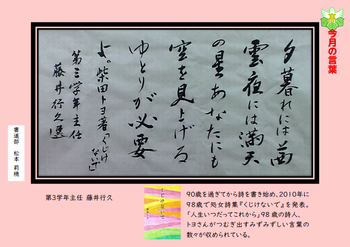 今月の言葉
夕暮れには茜
雲夜には満天
の星あなたにも
空を見上げる
ゆとりが必要
よ。柴田トヨ著「くじけ
ないで」
第三学年主任
藤井行久選
書道部 松本 莉穂
第3学年主任 藤井行久
90歳を過ぎてから詩を書き始め、2010年に
98歳で処女詩集『くじけないで』を発表。
「人生いつだってこれから」98歳の詩人、
トヨさんがつむぎ出すみずみずしい言葉の
数々が収められている。